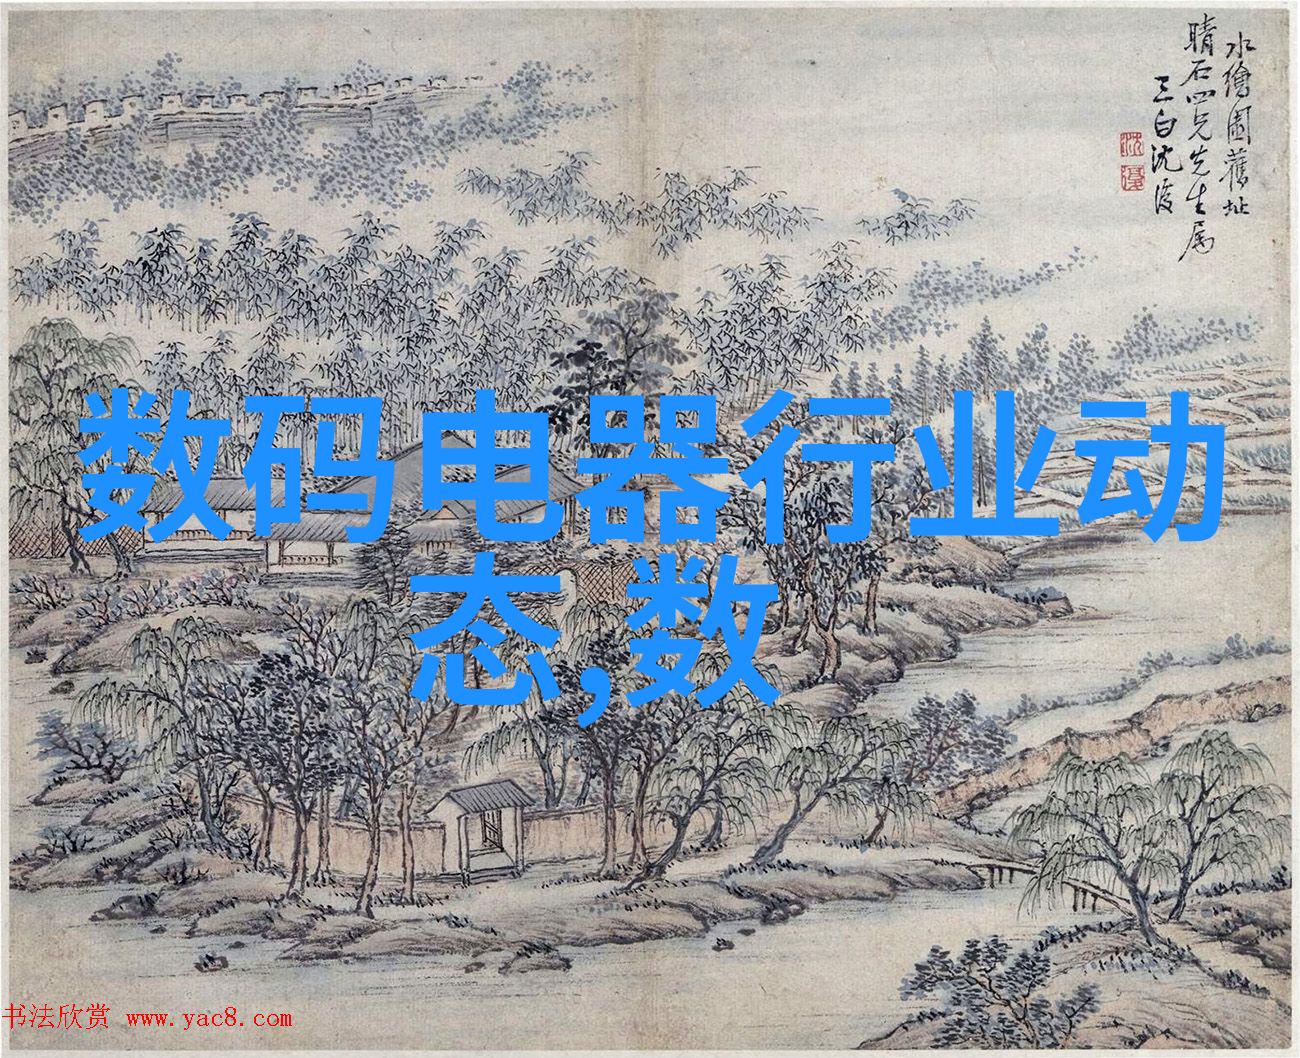 水繪園舊址
晴石四兄先生属
三白沈復
沈
復
数码电器行业动
态,数
书法欣赏 www.yac8.com